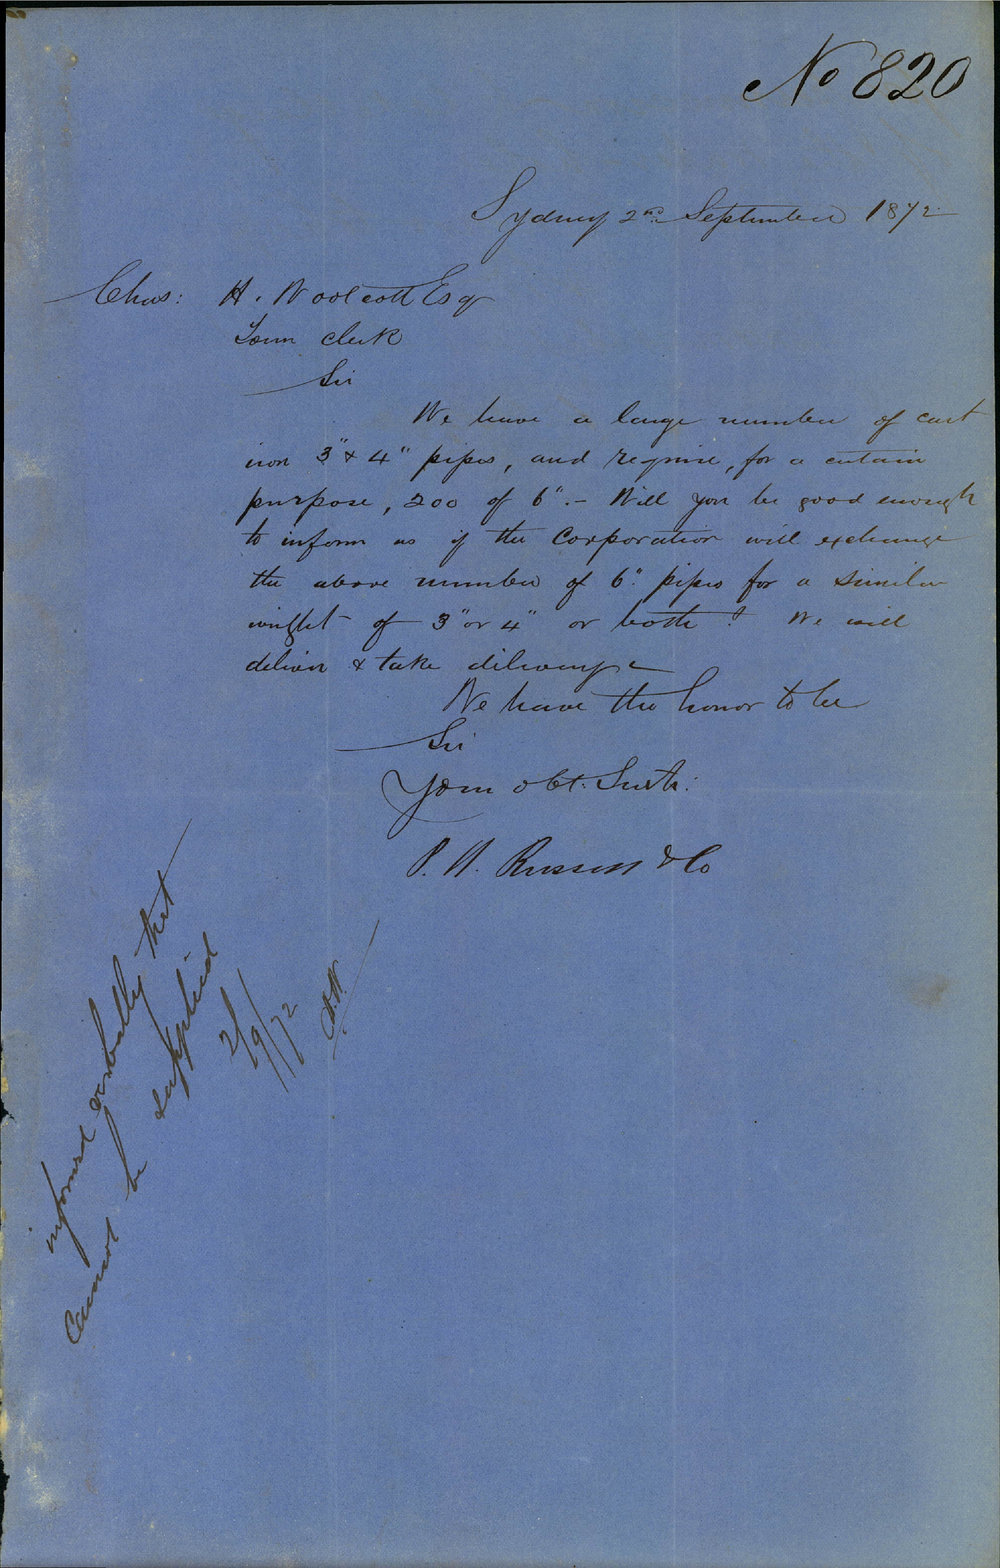 No 820
Sydney 2nd September 1872
Chas: H. Woolcott Esq
Town Clerk
Sir
We have a large number of cast
iron 3" & 4" pipes, and require, for a certain
purpose, 200 of 6". - Will you be good enough
to inform us if the Corporation will exchange
the above number of 6" pipes for a similar
weight of 3" or 4" or both? We will
deliver & take delivery
We have the honor to be
Sir
Your obt. Servts.
P. N. Russell & Co
informed verbally that
cannot be supplied
2/9/72